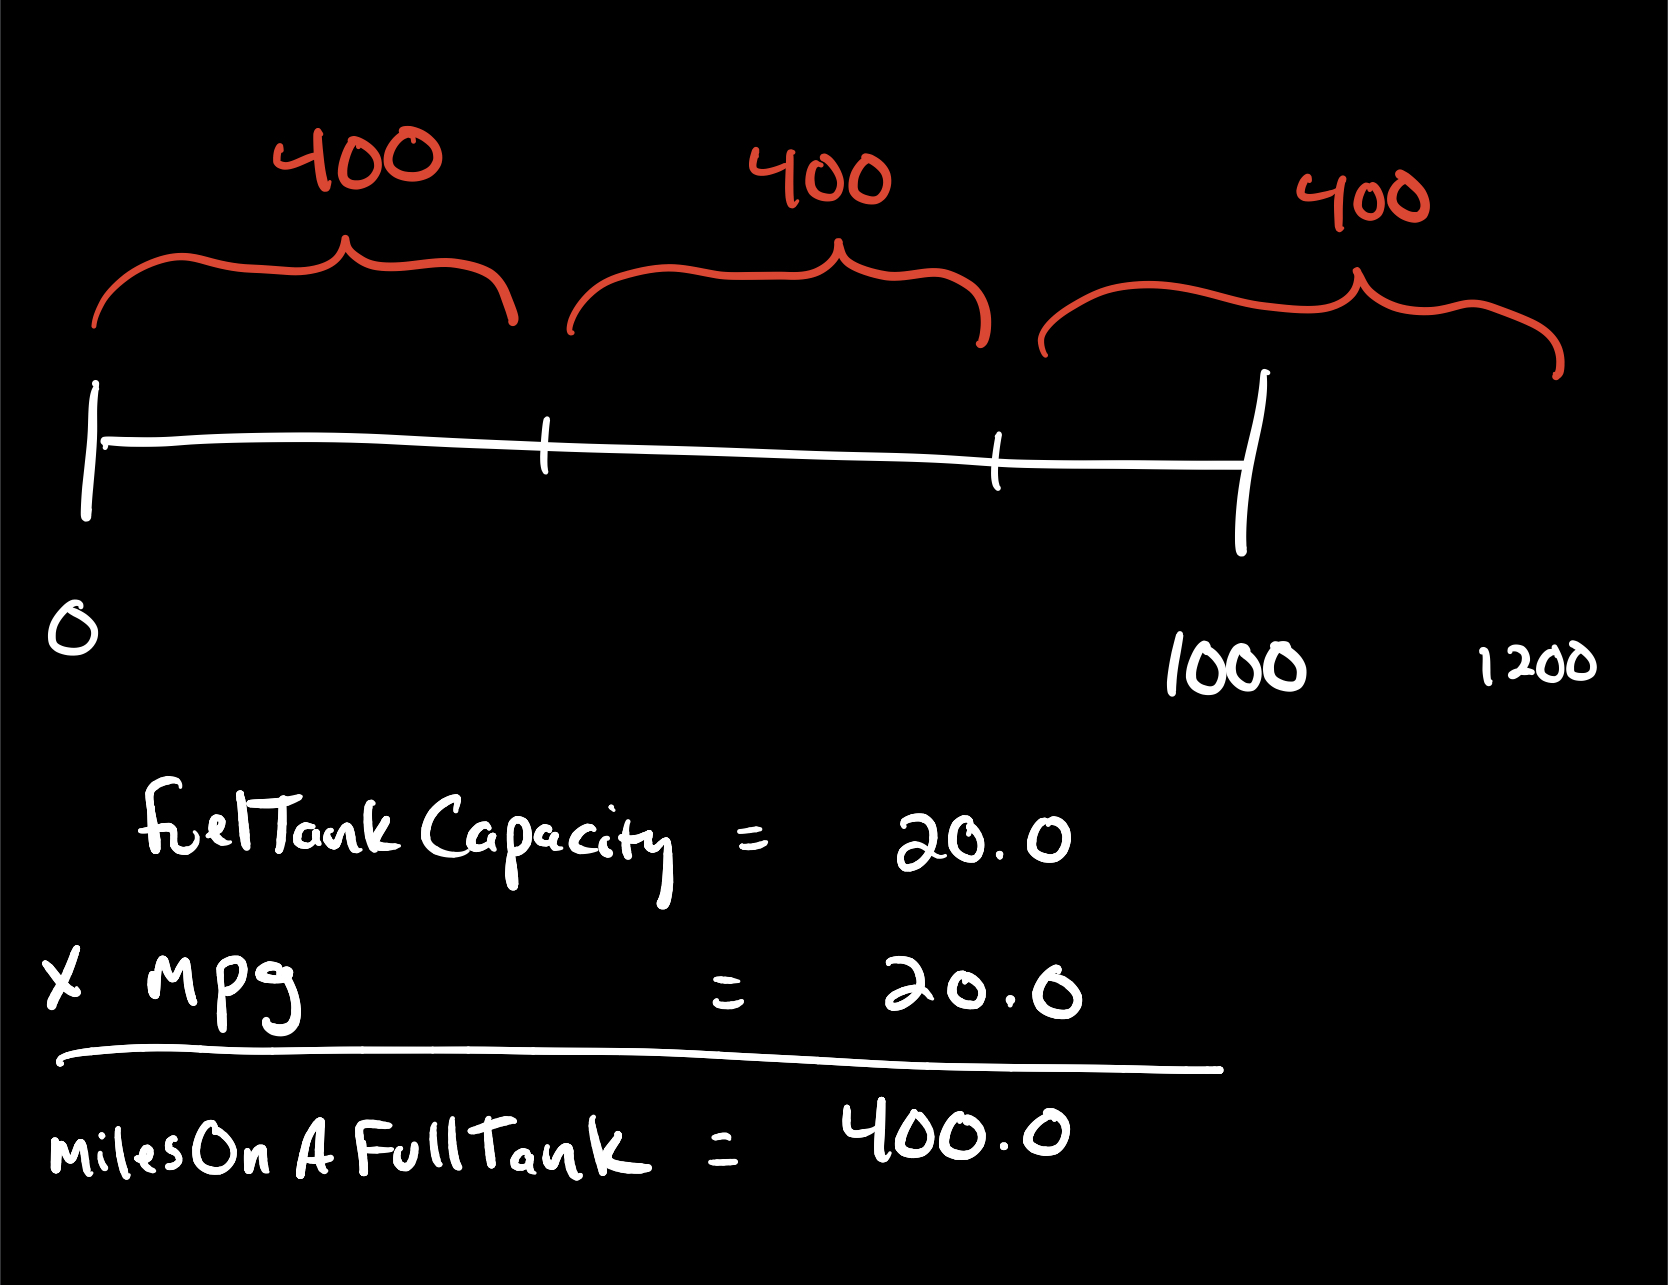 400 400 400
0 1000 1200
fuelTankCapacity = 20.0
x mpg = 20.0
milesOnAFullTank = 400.0